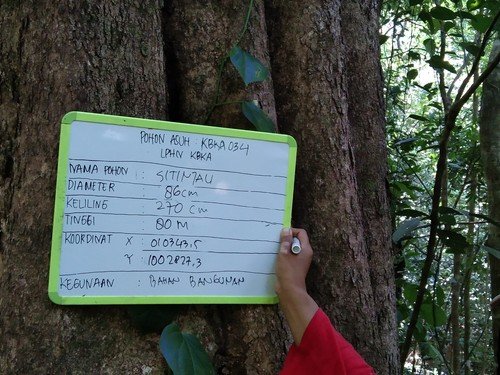 POHON ASUH : KBKA 034
LPHN KBKA
NAMA POHON : SITIMAU
DIAMETER : 86 cm
KELILING : 270 cm
TINGGI : 80 M
KOORDINAT X : 010343,5
Y : 1002827,3
KEGUNAAN : BAHAN BANGUNAN